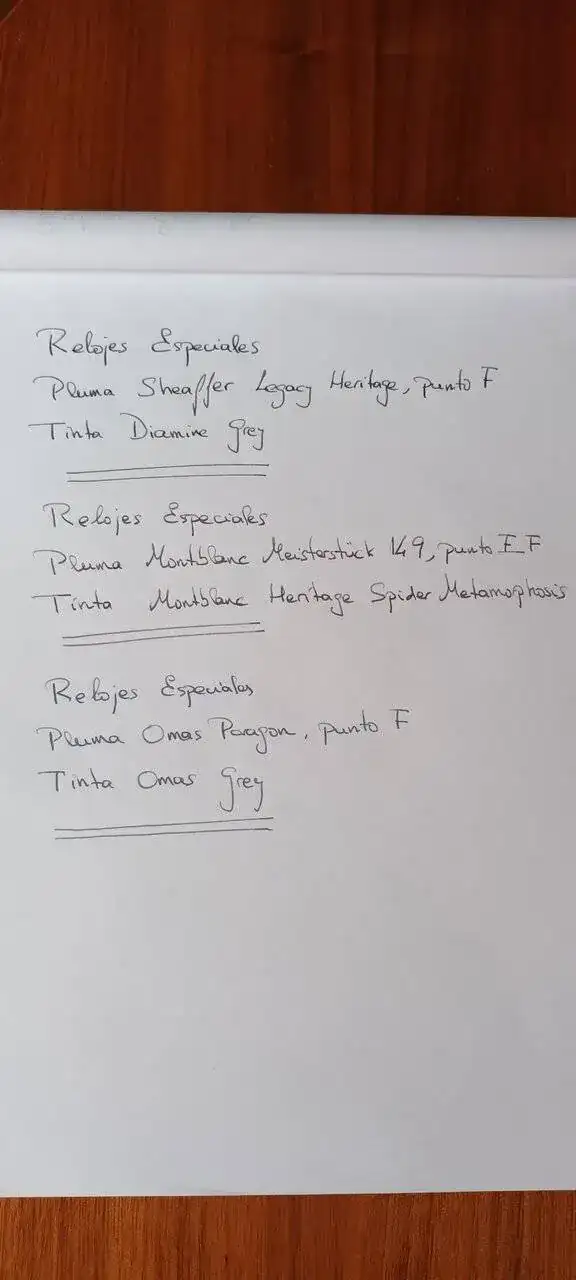 Relojes Especiales
Pluma Sheaffer Legacy Heritage, punto F
Tinta Diamine Grey
Relojes Especiales
Pluma Montblanc Meisterstück 149, punto EF
Tinta Montblanc Heritage Spider Metamorphosis
Relojes Especiales
Pluma Omas Paragon, punto F
Tinta Omas Grey